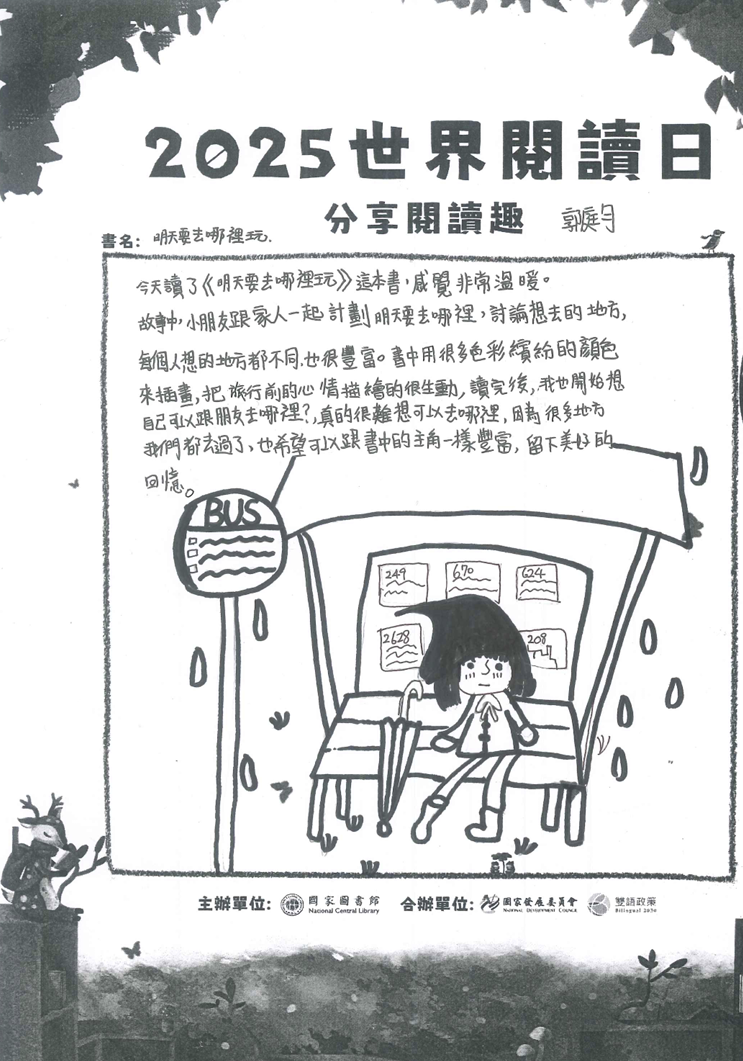 2025世界閱讀日
分享閱讀趣
郭庭昀
書名: 明天要去哪裡玩.
今天讀了《明天要去哪裡玩》這本書,感覺非常溫暖。
故事中,小朋友跟家人一起計劃明天要去哪裡,討論想去的地方,
每個人想的地方都不同,也很豐富。書中用很多色彩繽紛的顏色
來插畫,把旅行前的心情描繪的很生動,讀完後,我也開始想
自己可以跟朋友去哪裡?,真的很難想可以去哪裡,因為很多地方
我們都去過了,也希望可以跟書中的主角一樣豐富,留下美好的
回憶。
BUS
249 670 624
2628 208
主辦單位: 國家圖書館 National Central Library 合辦單位: 國家發展委員會 National Development Council 雙語政策 Bilingual 2030